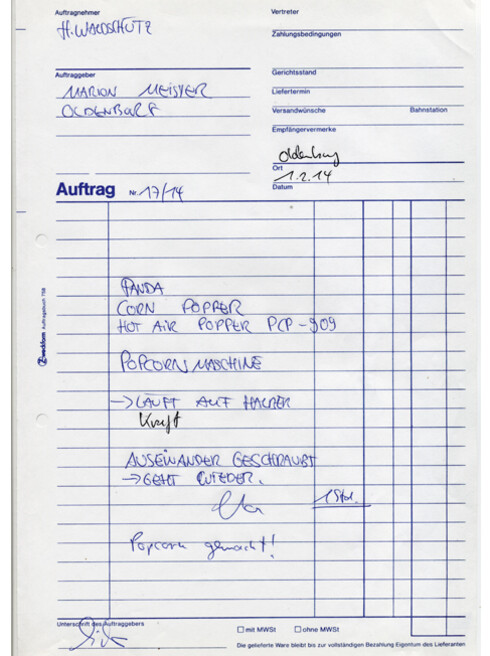 Auftragnehmer
H. WALDSCHÜTZ
Auftraggeber
MARION MEISTER
OLDENBURG
Vertreter
Zahlungsbedingungen
Gerichtsstand
Liefertermin
Versandwünsche Bahnstation
Empfängervermerke
Oldenburg
Ort
1.2.14
Datum
Auftrag Nr. 17/14
PANDA
CORN POPPER
HOT AIR POPPER PCP-909
POPCORNMASCHINE
→ LÄUFT AUF HALBER
Kraft
AUSEINANDER GESCHRAUBT
→ GEHT WIEDER.
1 Std.
Popcorn gemacht!
Unterschrift des Auftraggebers
mit MWSt ohne MWSt
Die gelieferte Ware bleibt bis zur vollständigen Bezahlung Eigentum des Lieferanten
zweckform Auftragsbuch 756